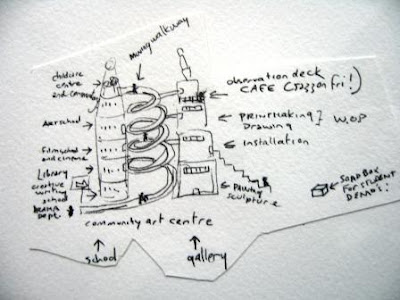 Moving walkway
childcare
centre
and computer
observation deck
CAFE
Art school
printmaking
Drawing
W.O.P
Film school
and cinema
installation
Library
creative
writing
school
DRAMA
Dept.
painting
sculpture
SOAP BOX
FOR STUDENT
DEMOS!
community art centre
school
gallery